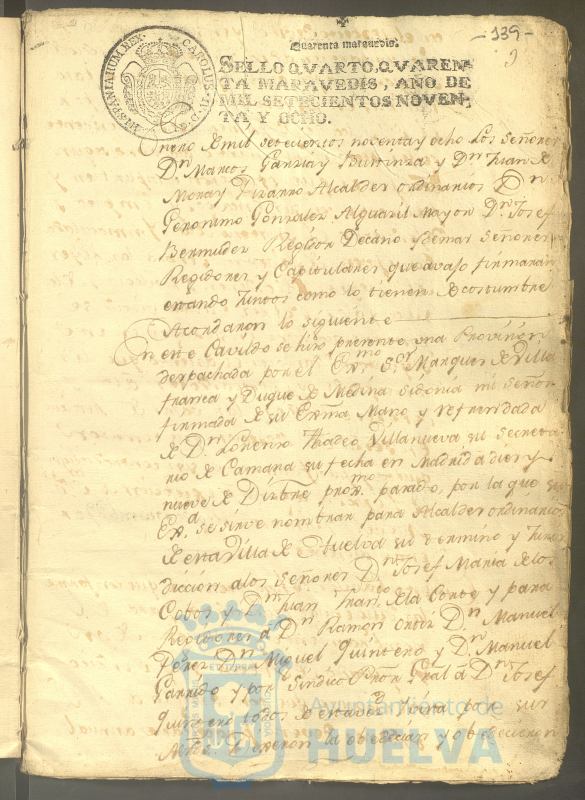 -139-
Quarenta maravedis.
SELLO QVARTO, QVAREN-
TA MARAVEDIS, AÑO DE
MIL SETECIENTOS NOVEN-
TA Y OCHO.
CAROLUS IV D G HISPANIARUM REX
Enero de mil setecientos noventa y ocho Los Señores
Dn Marcos Garzia y Dn Juan de
Mora y Pizarro Alcaldes ordinarios Dn
Geronimo Gonzalez Alguacil Mayor Dn Josef
Bermudez Regidor Decano y demas Señores
Regidores y Capitulares que avajo firmaran
estando juntos como lo tienen de costumbre
Acordaron lo siguiente
En este Cavildo se hizo presente una Provision
despachada por el Exmo Sor Marques de Villa
franca y Duque de Medina Sidonia mi Señor
firmada de su Exma Mano y refrendada
de Dn Lorenzo Thadeo Villanueva su Secreta
rio de Camara su fecha en Madrid a diez y
nueve de Dizbre proxmo pasado, por la que su
Exa se sirve nombrar para Alcaldes ordinarios
de esta Villa de Huelva su termino y Juris
diccion a los Señores Dn Josef Maria de los
Cobos y Dn Juan Franco de la Corte y para
Regidores á Dn Ramon Ortiz Dn Manuel
Perez Dn Miguel Quintero y Dn Manuel
Garrido y por Sindico Pror Gral á Dn Josef
Quintero todos de esta vecinda por sus
dixeron la obedecian y obedecieron
Ayuntamiento de
HUELVA